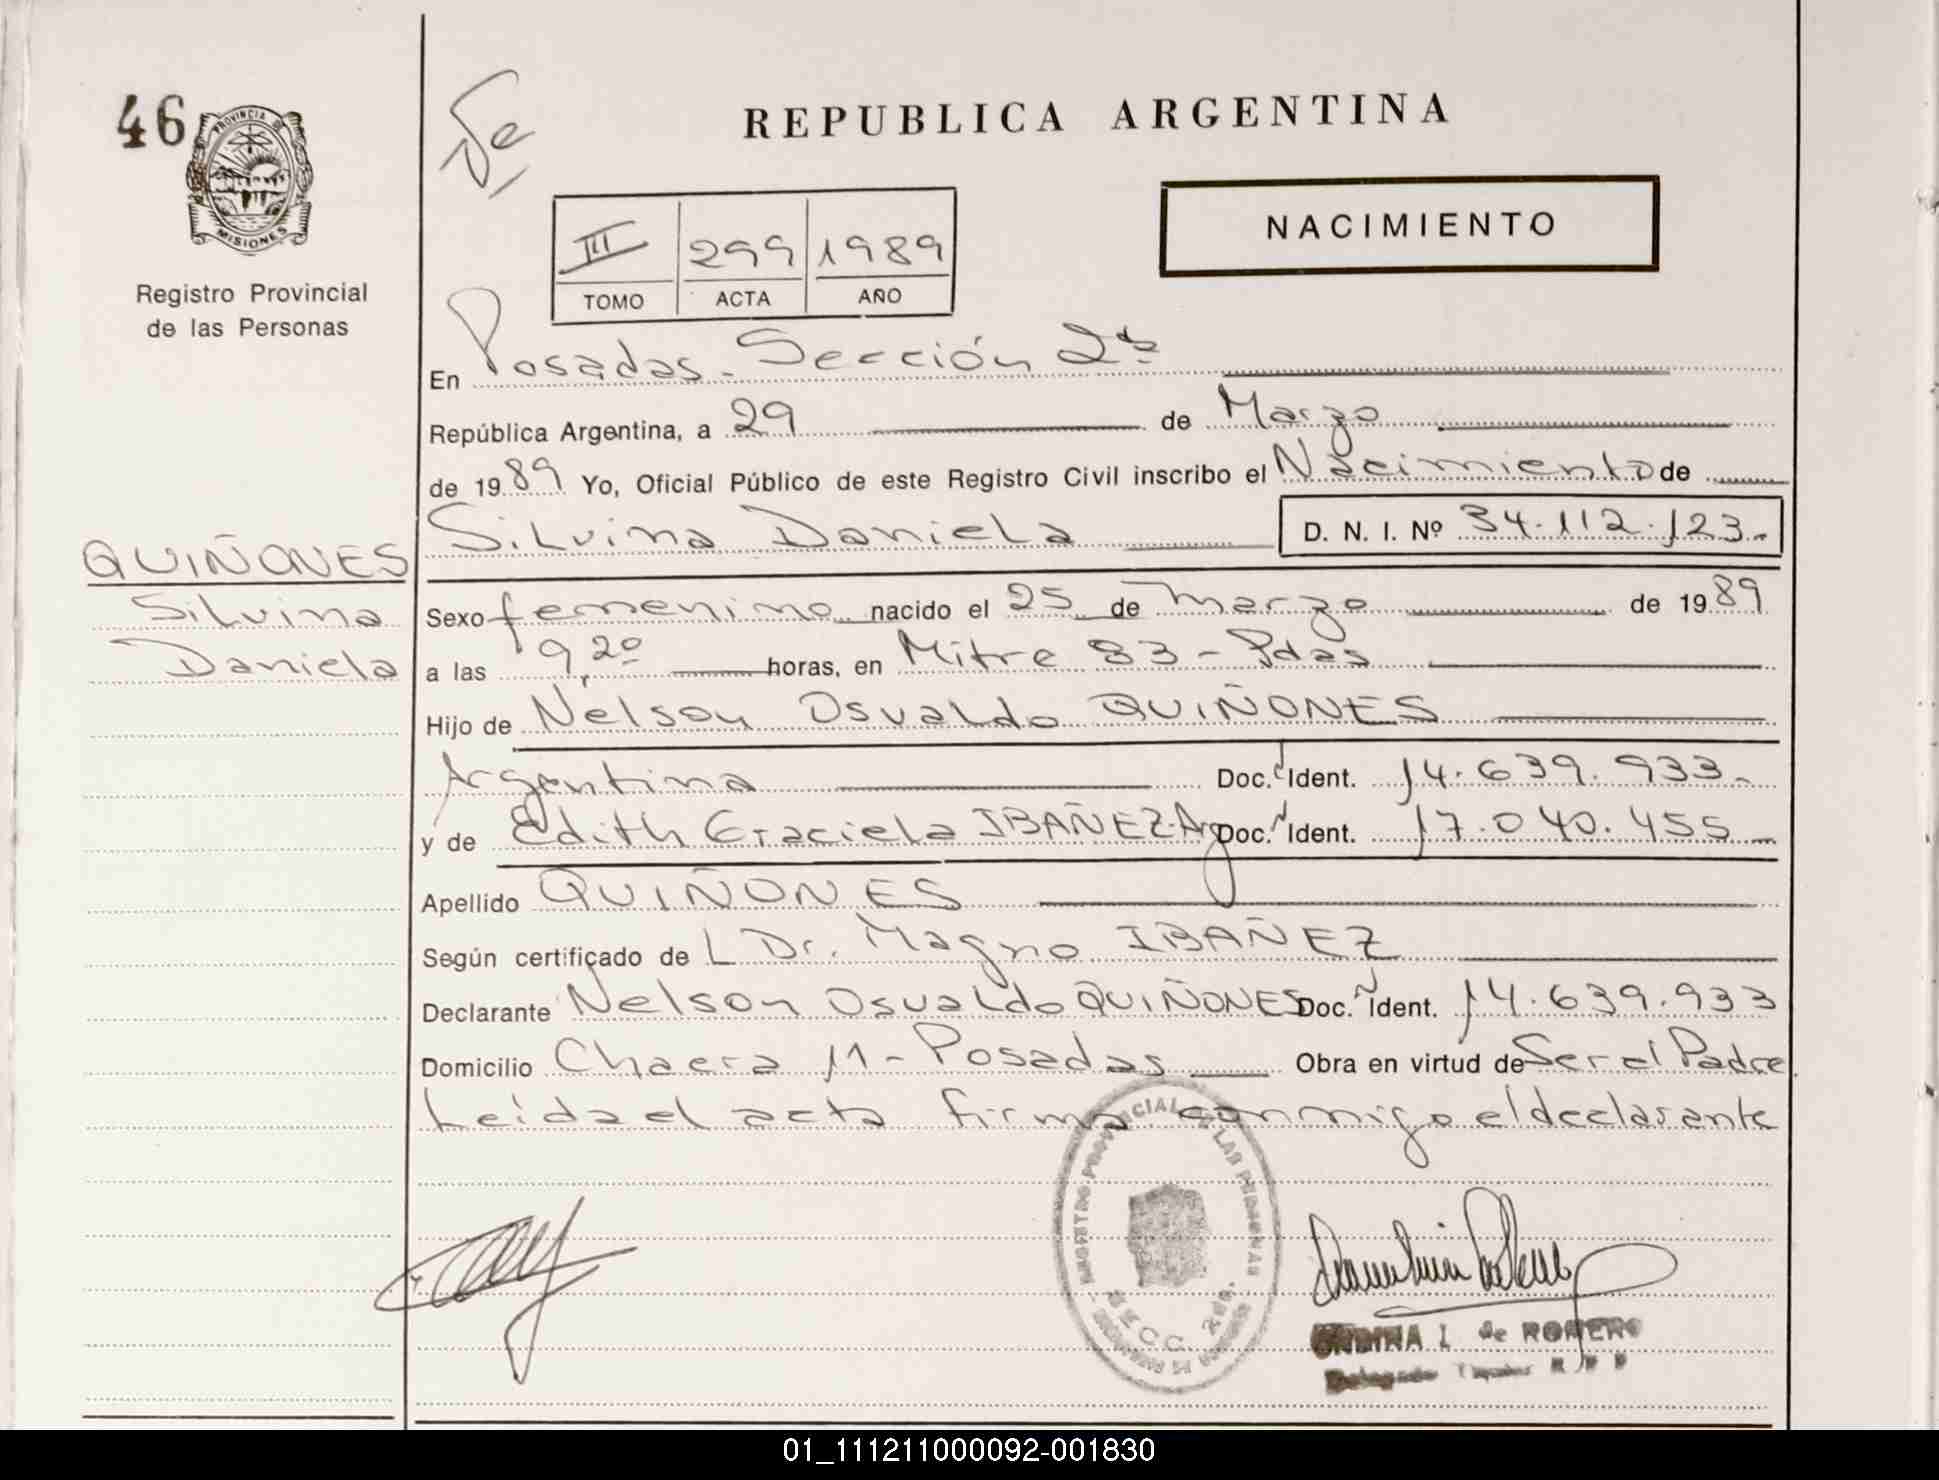 46
PROVINCIA DE
MISIONES
Registro Provincial
de las Personas
REPUBLICA ARGENTINA
NACIMIENTO
III 299 1989
TOMO ACTA AÑO
En Posadas - Sección 2da
República Argentina, a 29 de Marzo
de 1989 Yo, Oficial Público de este Registro Civil inscribo el Nacimiento de
Silvina Daniela D. N. I. Nº 34.112.123.-
QUIÑONES
Silvina
Daniela
Sexo femenino nacido el 25 de Marzo de 1989
a las 9,20 horas, en Mitre 83 - Pdas
Hijo de Nelson Osvaldo QUIÑONES
Argentina Doc. Ident. 14.639.933.-
y de Edith Graciela IBAÑEZ.Arg Doc. Ident. 17.040.455
Apellido QUIÑONES
Según certificado de L Dr. Magno IBAÑEZ
Declarante Nelson Osvaldo QUIÑONES Doc. Ident. 14.639.933
Domicilio Chacra 11 - Posadas Obra en virtud de Ser el Padre
Leída el acta firma conmigo el declarante
REGISTRO PROVINCIAL DE LAS PERSONAS
SECC. 2da.
I. de ROMERO
01_111211000092-001830